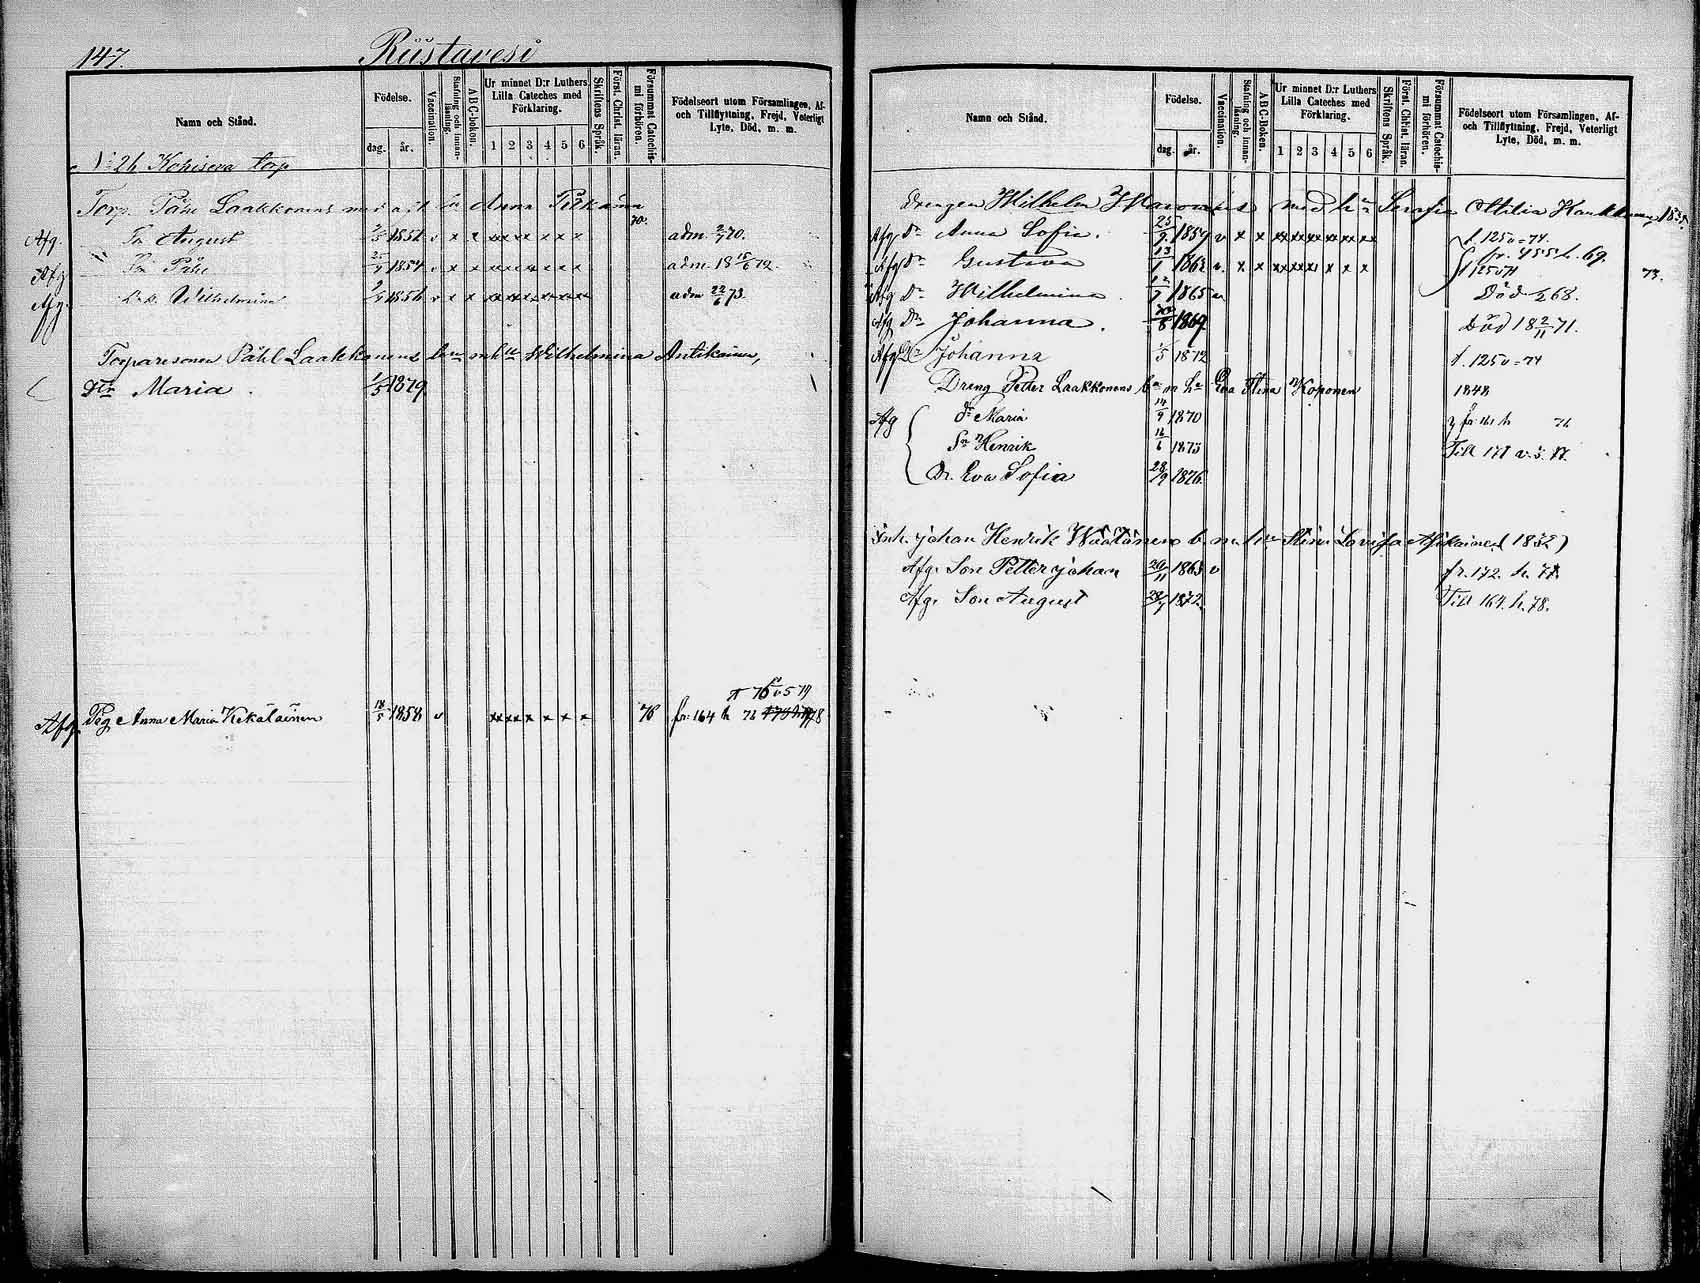 147.
Riistavesi
Namn och Stånd.
Födelse.
dag. år.
Vaccination.
Stafning och innanläsning.
ABC-boken.
Ur minnet D:r Luthers Lilla Cateches med Förklaring.
1 2 3 4 5 6
Skriftens Språk.
Först. Christ. läran.
Försummat Catechismi förhören.
Födelseort utom Församlingen, Af- och Tillflyttning, Frejd, Veterligt Lyte, Död, m. m.
26 torp
Torp. Påhl Laakkonens Anna
70.
Afg. Sn August 1851 v x x xx x x x x x adm. 2/7 70.
Afg. Sn Påhl 1854 v x x xx x x x x x adm. 18 15/6 72.
Afg. Wilhelmina 1856 v x x xx xx x x x x x adm 22/6 73.
Torparesonen Påhl Laakkonens Wilhelmina Antikainen,
Dtr Maria. 1/5 1879
π 76 v 579
Afg. Pig Anna Maria Kekäläinen 18/5 1858 v xx xx x x x x 76 fr. 164 h 76
Namn och Stånd.
Födelse.
dag. år.
Vaccination.
Stafning och innanläsning.
ABC-Boken.
Ur minnet D:r Luthers Lilla Cateches med Förklaring.
1 2 3 4 5 6
Skriftens Språk.
Först. Christ. läran.
Försummat Catechismi förhören.
Födelseort utom Församlingen, Af- och Tillflyttning, Frejd, Veterligt Lyte, Död, m. m.
Drengen Wilhelm med hu Serafia Ottilia
Afg Dr Anna Sofia. 25/9 1857 v x x xx xx x x x x x t. 125 v = 74.
fr. 455 h. 69.
Afg Dr Gustava 13/1 1862 v. x x xx xx x x x x t 125 v 74 73.
Afg Dr Wilhelmina 1865 v Död 68.
Afg Dr Johanna. 20/8 1869 Död 18 2/11 71.
Afg Dr Johanna 1/5 1872 t. 125 v = 74
Dreng Petter Laakkonens b. m. hu Eva Stina Koponen 1848
Afg dr Maria 14/9 1870 fr. 161 h 76
Sn Henrik 1875 Till 177 v. s. 77.
Dr. Eva Sofia 28/9 1876.
Inh. Johan Henrik Väätänen b. m. hu Stina Lovisa (1832)
Afg. Son Petter Johan 20/11 1865 v fr. 172. h. 77.
Afg. Son August 28/7 1872. Till 164. h. 78.